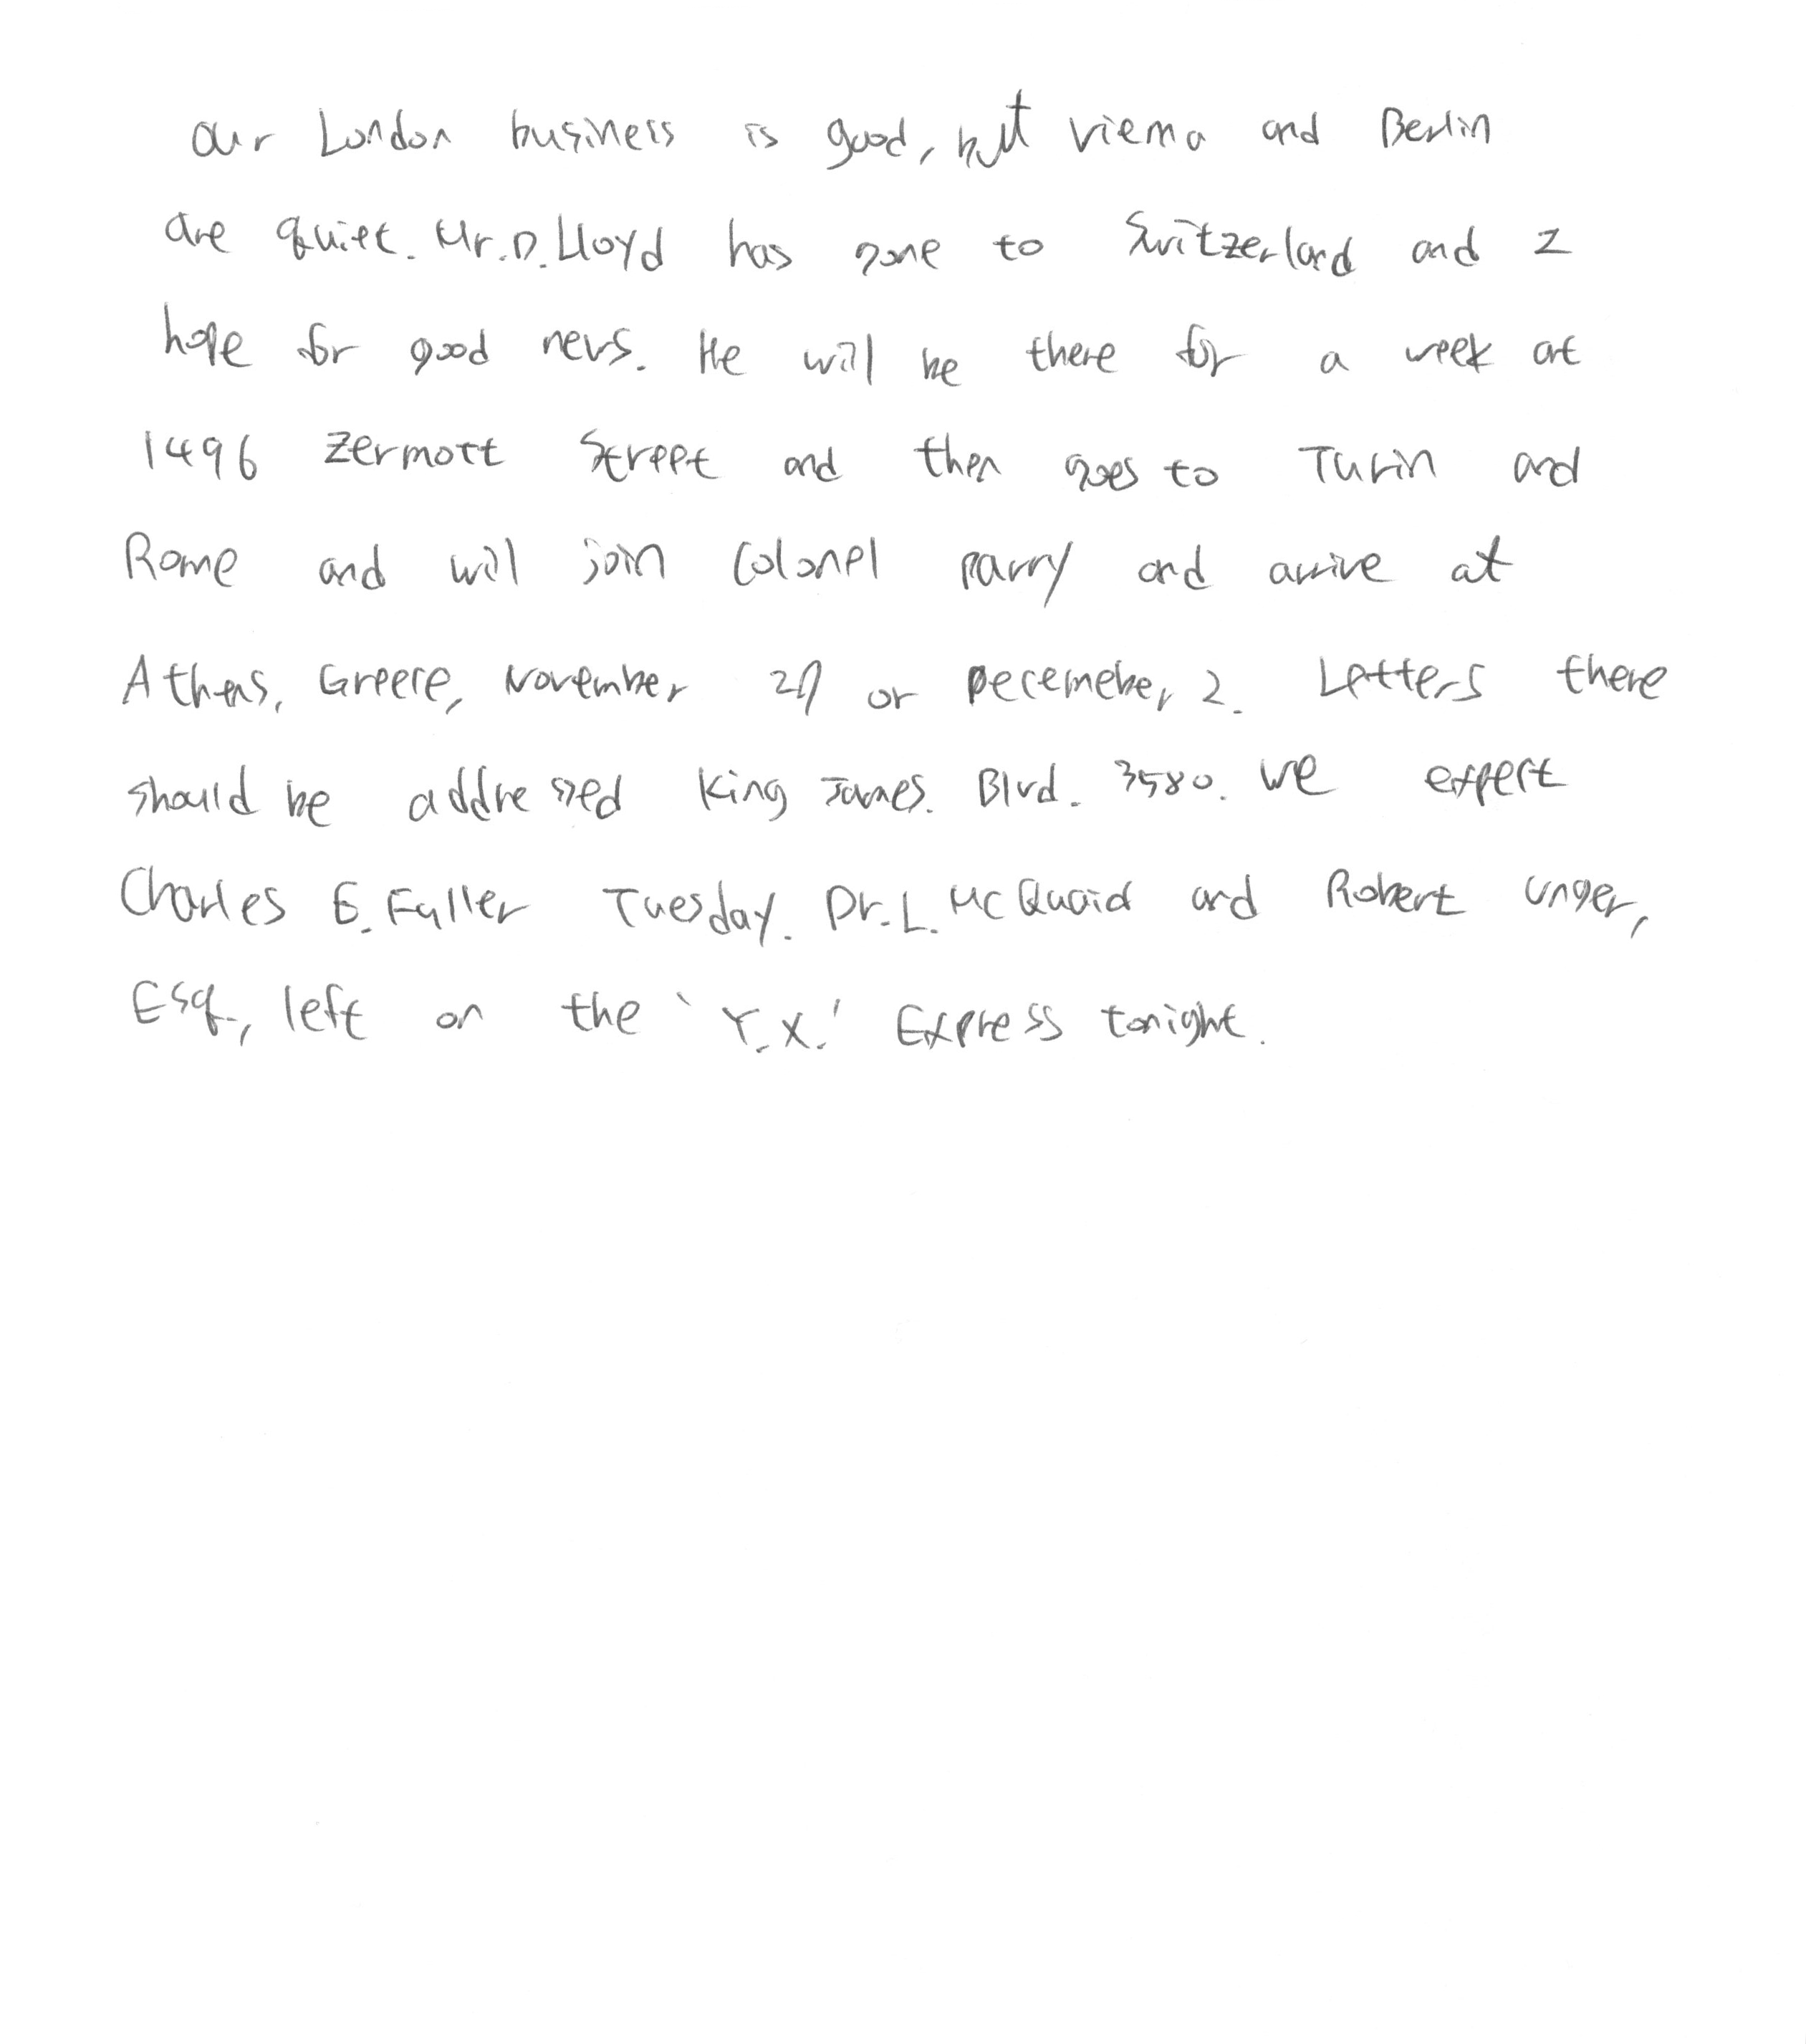 Our London business is good, but Vienna and Berlin
are quiet. Mr. D. Lloyd has gone to Switzerland and I
hope for good news. He will be there for a week at
1496 Zermott Street and then goes to Turin and
Rome and will join Colonel Parry and arrive at
Athens, Greece, November 27 or Decemeber 2. Letters there
should be addressed King James. Blvd. 3580. We expect
Charles E. Fuller Tuesday. Dr. L. McQuaid and Robert Unger,
Esq., left on the 'Y.X.' Express tonight.